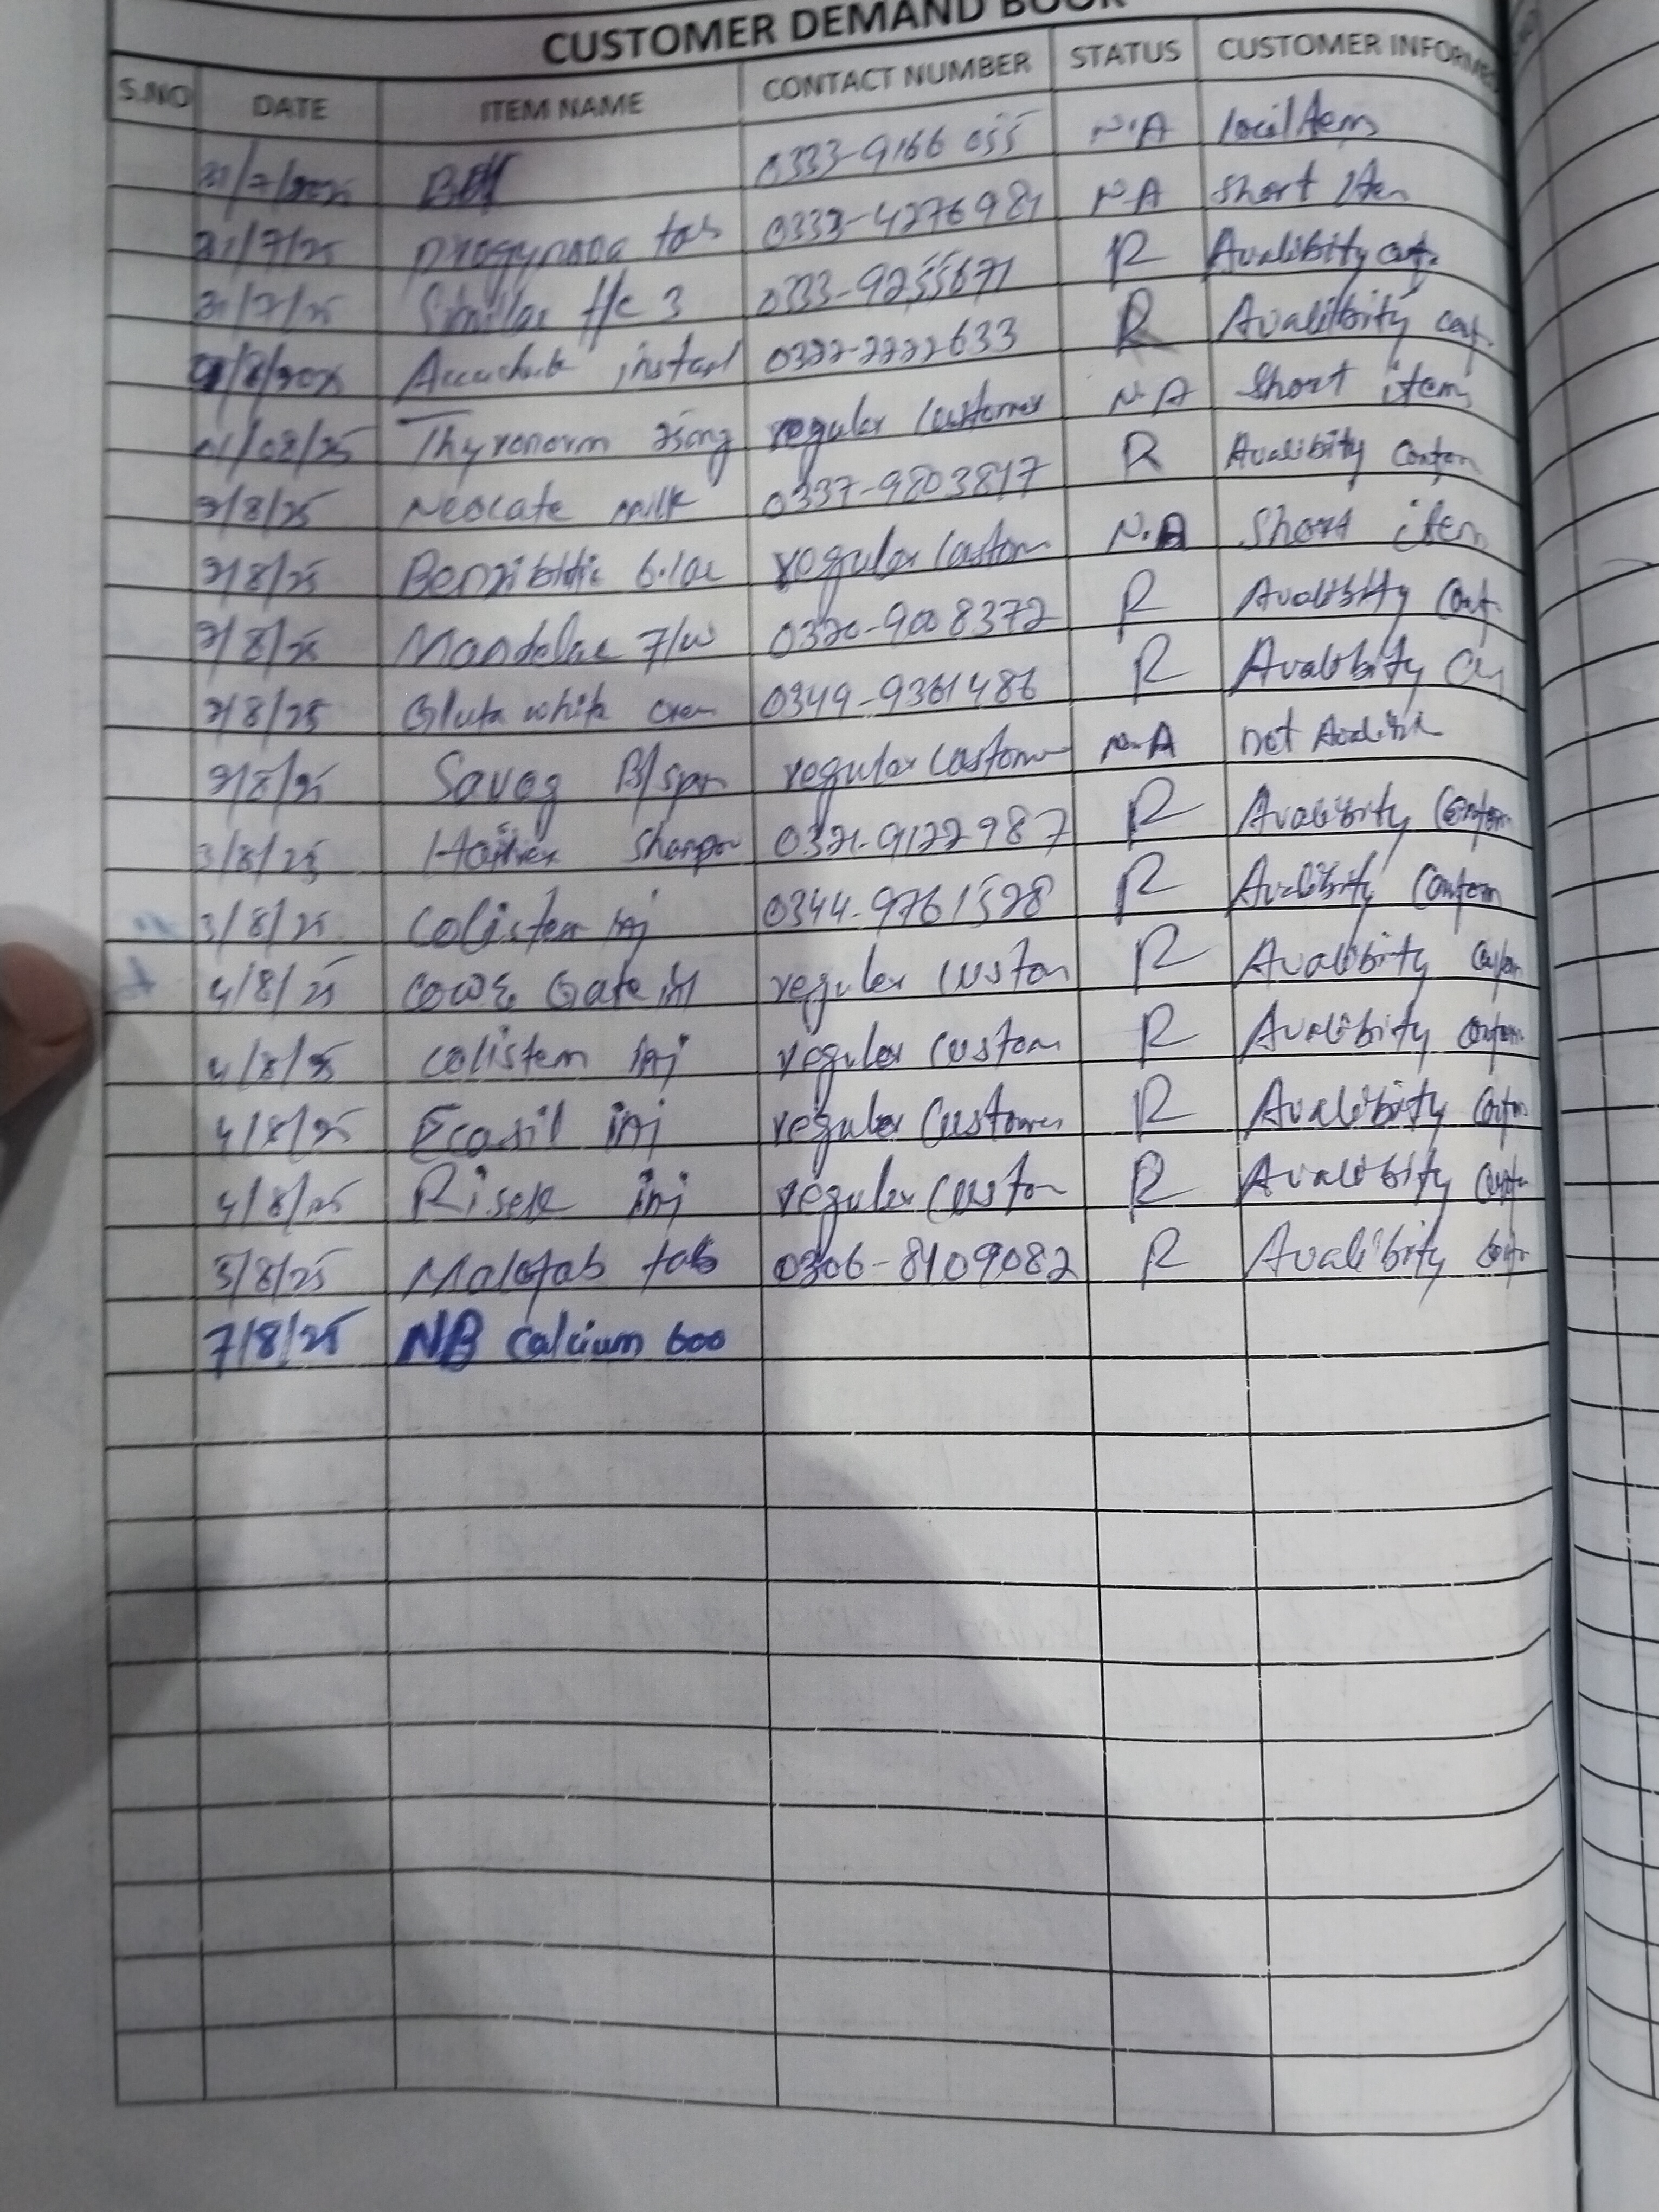 CUSTOMER DEMAND BOOK
S.NO DATE ITEM NAME CONTACT NUMBER STATUS CUSTOMER INFORMED
31/7/2025 0333-9166055 N.A local item
31/7/25 progynova tab 0333-4276981 N.A short item
31/7/25 Similac f/c 3 0333-9255671 R Avalibity conf.
Accuchek instant 0322-2222633 R Avalibity conf.
01/08/25 Thyronorm 25mg regular customer N.A Short item
2/8/25 Neocate milk 0337-9803817 R Avalibity
2/8/25 regular custom N.A Short item
2/8/25 Mandelac F/w 0320-9008372 R Avalibity conf.
2/8/25 Gluta white cream 0349-9361486 R Avalibity
2/8/25 B/spr regular custome N.A not
3/8/25 0321-9122987 R Avalibity Conform
3/8/25 Colisten inj 0344-9761528 R Avalibity Conform
4/8/25 Cow & Gate regular custom R Avalibity
4/8/25 colistem inj regular custom R Avalibity
4/8/25 Ecasil inj regular customer R Avalibity
4/8/25 Risek inj regular custom R Avalibity
5/8/25 Malofab tab 0306-8109082 R Avalibity
7/8/25 NB calcium 600